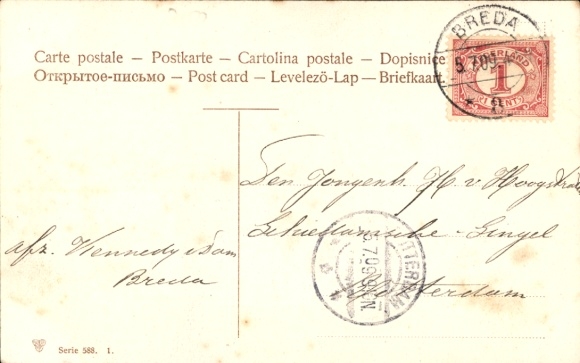 Carte postale — Postkarte — Cartolina postale — Dopisnice
Открытое-письмо — Post card — Levelező-Lap — Briefkaart
BREDA
5.7.09
8
NEDERLAND
1
CENT
Den Jongenh. H. v Hoogstra
Schiedamsche-Singel
Rotterdam
ROTTERDAM
5.7.09
N
afz. Kennedy v Dam
Breda
Serie 588. 1.